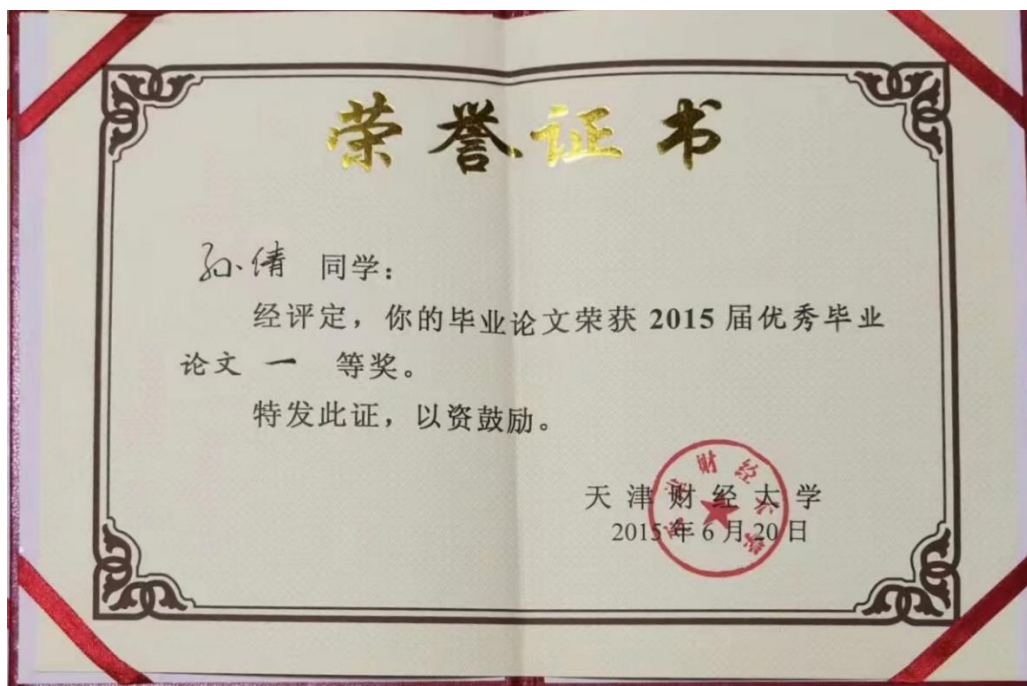 荣誉证书
孙倩 同学：
经评定，你的毕业论文荣获 2015 届优秀毕业
论文 一 等奖。
特发此证，以资鼓励。
天津财经大学
2015 年 6 月 20 日
天津财经大学